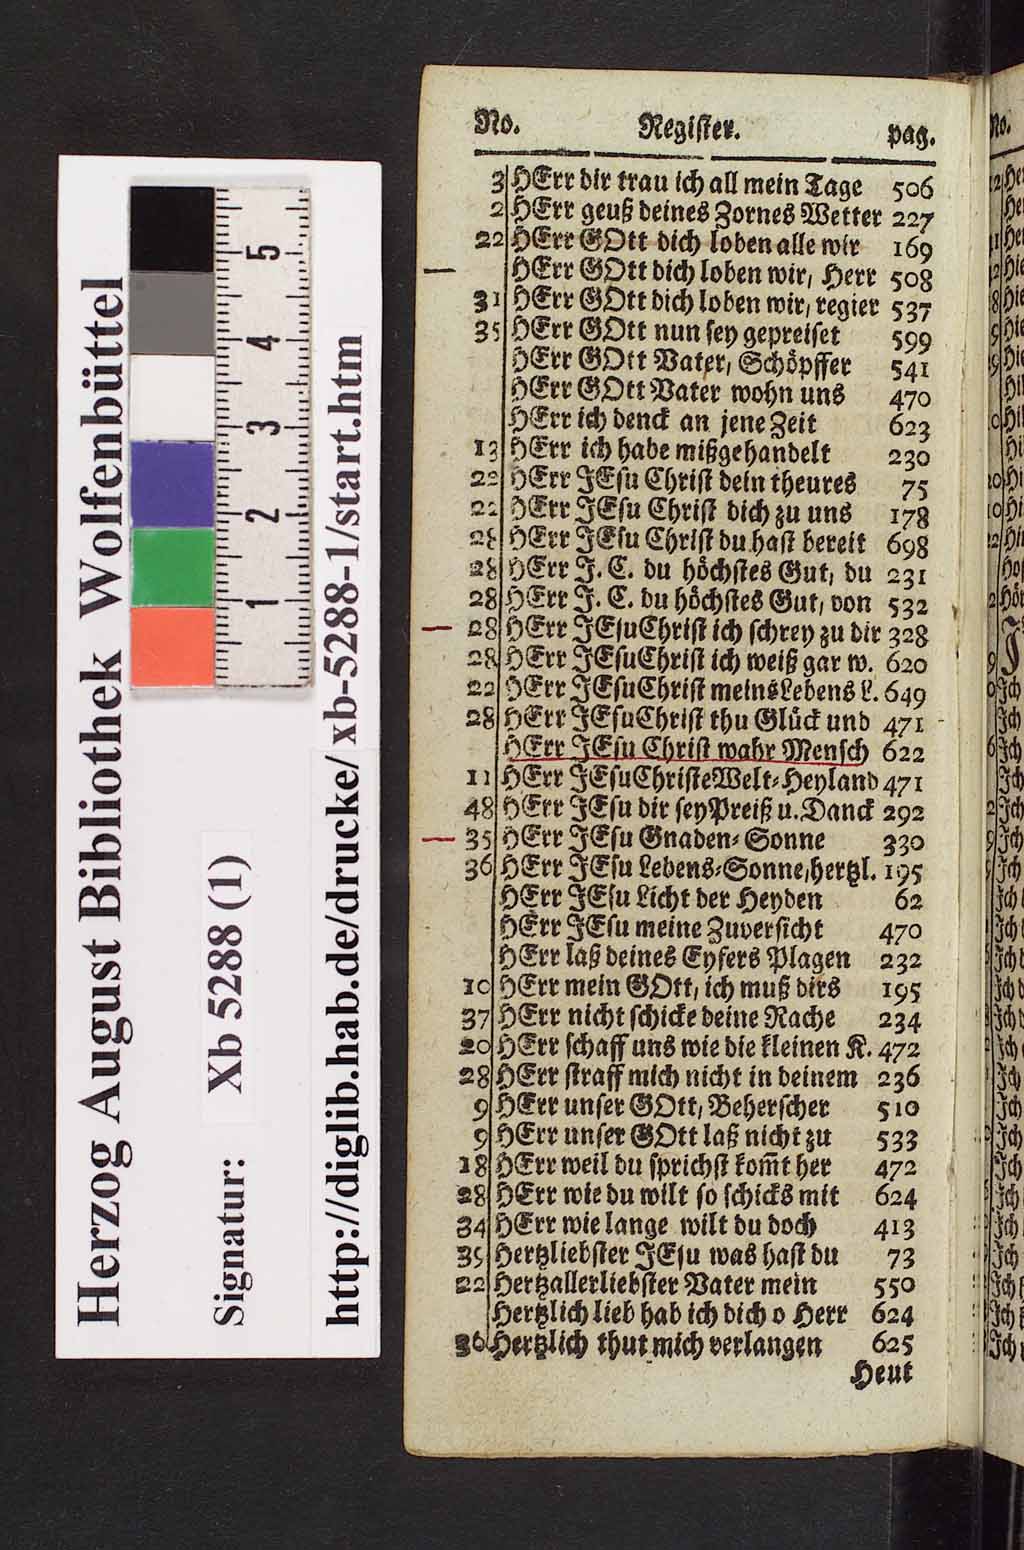 Herzog August Bibliothek Wolfenbüttel
Signatur: Xb 5288 (1)
http://diglib.hab.de/drucke/xb-5288-1/start.htm
5
4
3
2
1
No. Register. pag.
3 HErr dir trau ich all mein Tage 506
2 HErr geuß deines Zornes Wetter 227
22 HErr GOtt dich loben alle wir 169
HErr GOtt dich loben wir, Herr 508
31 HErr GOtt dich loben wir, regier 537
35 HErr GOtt nun sey gepreiset 599
HErr GOtt Vater, Schöpffer 541
HErr GOtt Vater wohn uns 470
HErr ich denck an jene Zeit 623
13 HErr ich habe mißgehandelt 230
22 HErr JEsu Christ dein theures 75
22 HErr JEsu Christ dich zu uns 178
28 HErr JEsu Christ du hast bereit 698
28 HErr J. C. du höchstes Gut, du 231
28 HErr J. C. du höchstes Gut, von 532
28 HErr JEsu Christ ich schrey zu dir 328
28 HErr JEsu Christ ich weiß gar w. 620
22 HErr JEsu Christ meins Lebens L. 649
28 HErr JEsu Christ thu Glück und 471
HErr JEsu Christ wahr Mensch 622
11 HErr JEsu Christe Welt-Heyland 471
48 HErr JEsu dir sey Preiß u. Danck 292
35 HErr JEsu Gnaden-Sonne 330
36 HErr JEsu Lebens-Sonne, hertzl. 195
HErr JEsu Licht der Heyden 62
HErr JEsu meine Zuversicht 470
HErr laß deines Eyfers Plagen 232
10 HErr mein GOtt, ich muß dirs 195
37 HErr nicht schicke deine Rache 234
20 HErr schaff uns wie die kleinen K. 472
28 HErr straff mich nicht in deinem 236
9 HErr unser GOtt, Beherscher 510
9 HErr unser GOtt laß nicht zu 533
18 HErr weil du sprichst kom̃t her 472
28 HErr wie du wilt so schicks mit 624
34 HErr wie lange wilt du doch 413
35 Hertzliebster JEsu was hast du 73
22 Hertzallerliebster Vater mein 550
Hertzlich lieb hab ich dich o Herr 624
36 Hertzlich thut mich verlangen 625
Heut